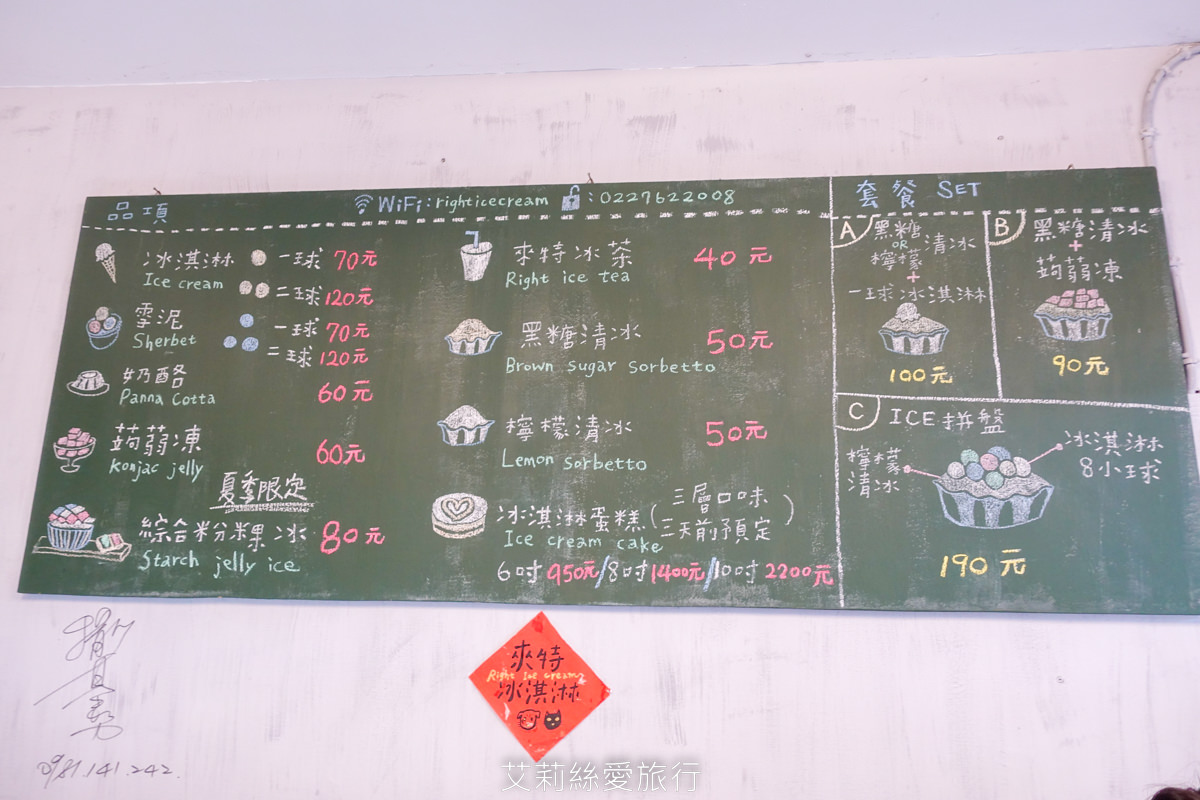 品項
WiFi:righticecream :0227622008
冰淇淋 一球 70元
Ice cream
二球 120元
雪泥 一球 70元
Sherbet
二球 120元
奶酪 60元
Panna Cotta
蒟蒻凍 60元
Konjac jelly
夏季限定
綜合粉粿冰 80元
Starch jelly ice
來特冰茶 40元
Right ice tea
黑糖清冰 50元
Brown sugar sorbetto
檸檬清冰 50元
Lemon sorbetto
冰淇淋蛋糕(三層口味
三天前預定)
Ice cream cake
6吋950元/8吋1400元/10吋2200元
套餐 SET
A 黑糖
OR 清冰
檸檬
+
一球冰淇淋
100元
B 黑糖清冰
+
蒟蒻凍
90元
C ICE拼盤
檸檬
清冰
冰淇淋
8小球
190元
0981.141.242.
來特
Right Ice cream
冰淇淋
艾莉絲愛旅行